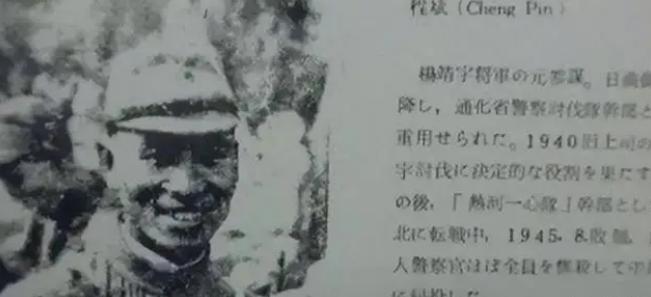 程斌（Cheng Pin）
楊靖宇将軍の元参謀。日
降し，通化省警察討伐隊幹部と
重用せられた。1940旧上司の
宇討伐に決定的な役割を果たす
の後，「熱河一心隊」幹部とし
北に転戦中，1945．8．敗
人警察官ほぼ全員を惨殺して